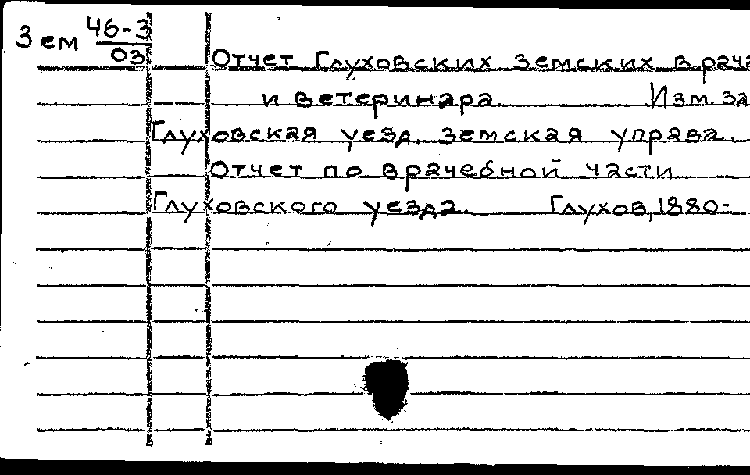 Зем 46-3
03
Отчет Глуховских земских врача
и ветеринара. Изм. за
Глуховская уезд. земская управа.
Отчет по врачебной части
Глуховского уезда. Глухов, 1880-